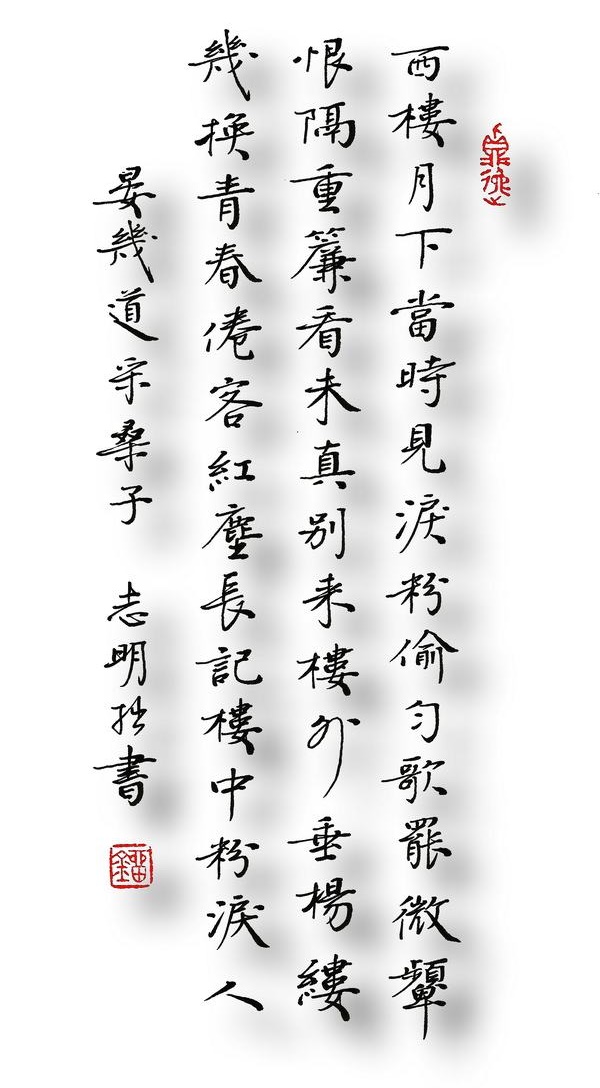 西樓月下當時見淚粉偷勻歌罷微顰
恨隔重簾看未真别来樓外垂楊縷
幾換青春倦客紅塵長記樓中粉淚人
晏幾道采桑子 志明拙書